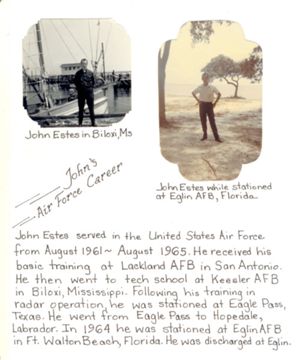 John Estes in Biloxi, Ms
John Estes while stationed
at Eglin AFB, Florida.
John's
Air Force Career
John Estes served in the United States Air Force
from August 1961~ August 1965. He received his
basic training at Lackland AFB in San Antonio.
He then went to tech school at Keesler AFB
in Biloxi, Mississippi. Following his training in
radar operation, he was stationed at Eagle Pass,
Texas. He went from Eagle Pass to Hopedale,
Labrador. In 1964 he was stationed at Eglin AFB
in Ft. Walton Beach, Florida. He was discharged at Eglin.